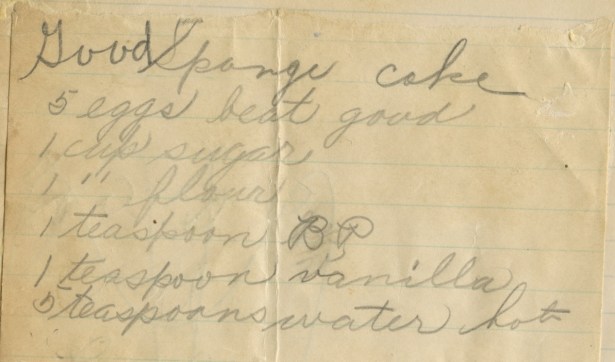 Good Sponge cake
5 eggs beat good
1 cup sugar
1 " flour
1 teaspoon BP
1 teaspoon vanilla
5 teaspoons water hot